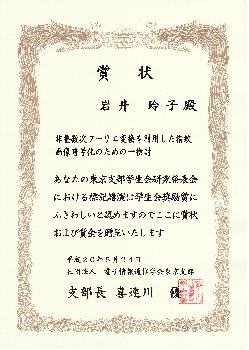 賞状
岩井 玲子殿
非整数次フーリエ変換を利用した指紋
画像暗号化のための一検討
あなたの東京支部学生会研究発表会
における標記講演は学生会奨励賞に
ふさわしいと認めますのでここに賞状
および賞金を贈呈いたします
平成20年5月24日
社団法人 電子情報通信学会東京支部
支部長 喜連川 優